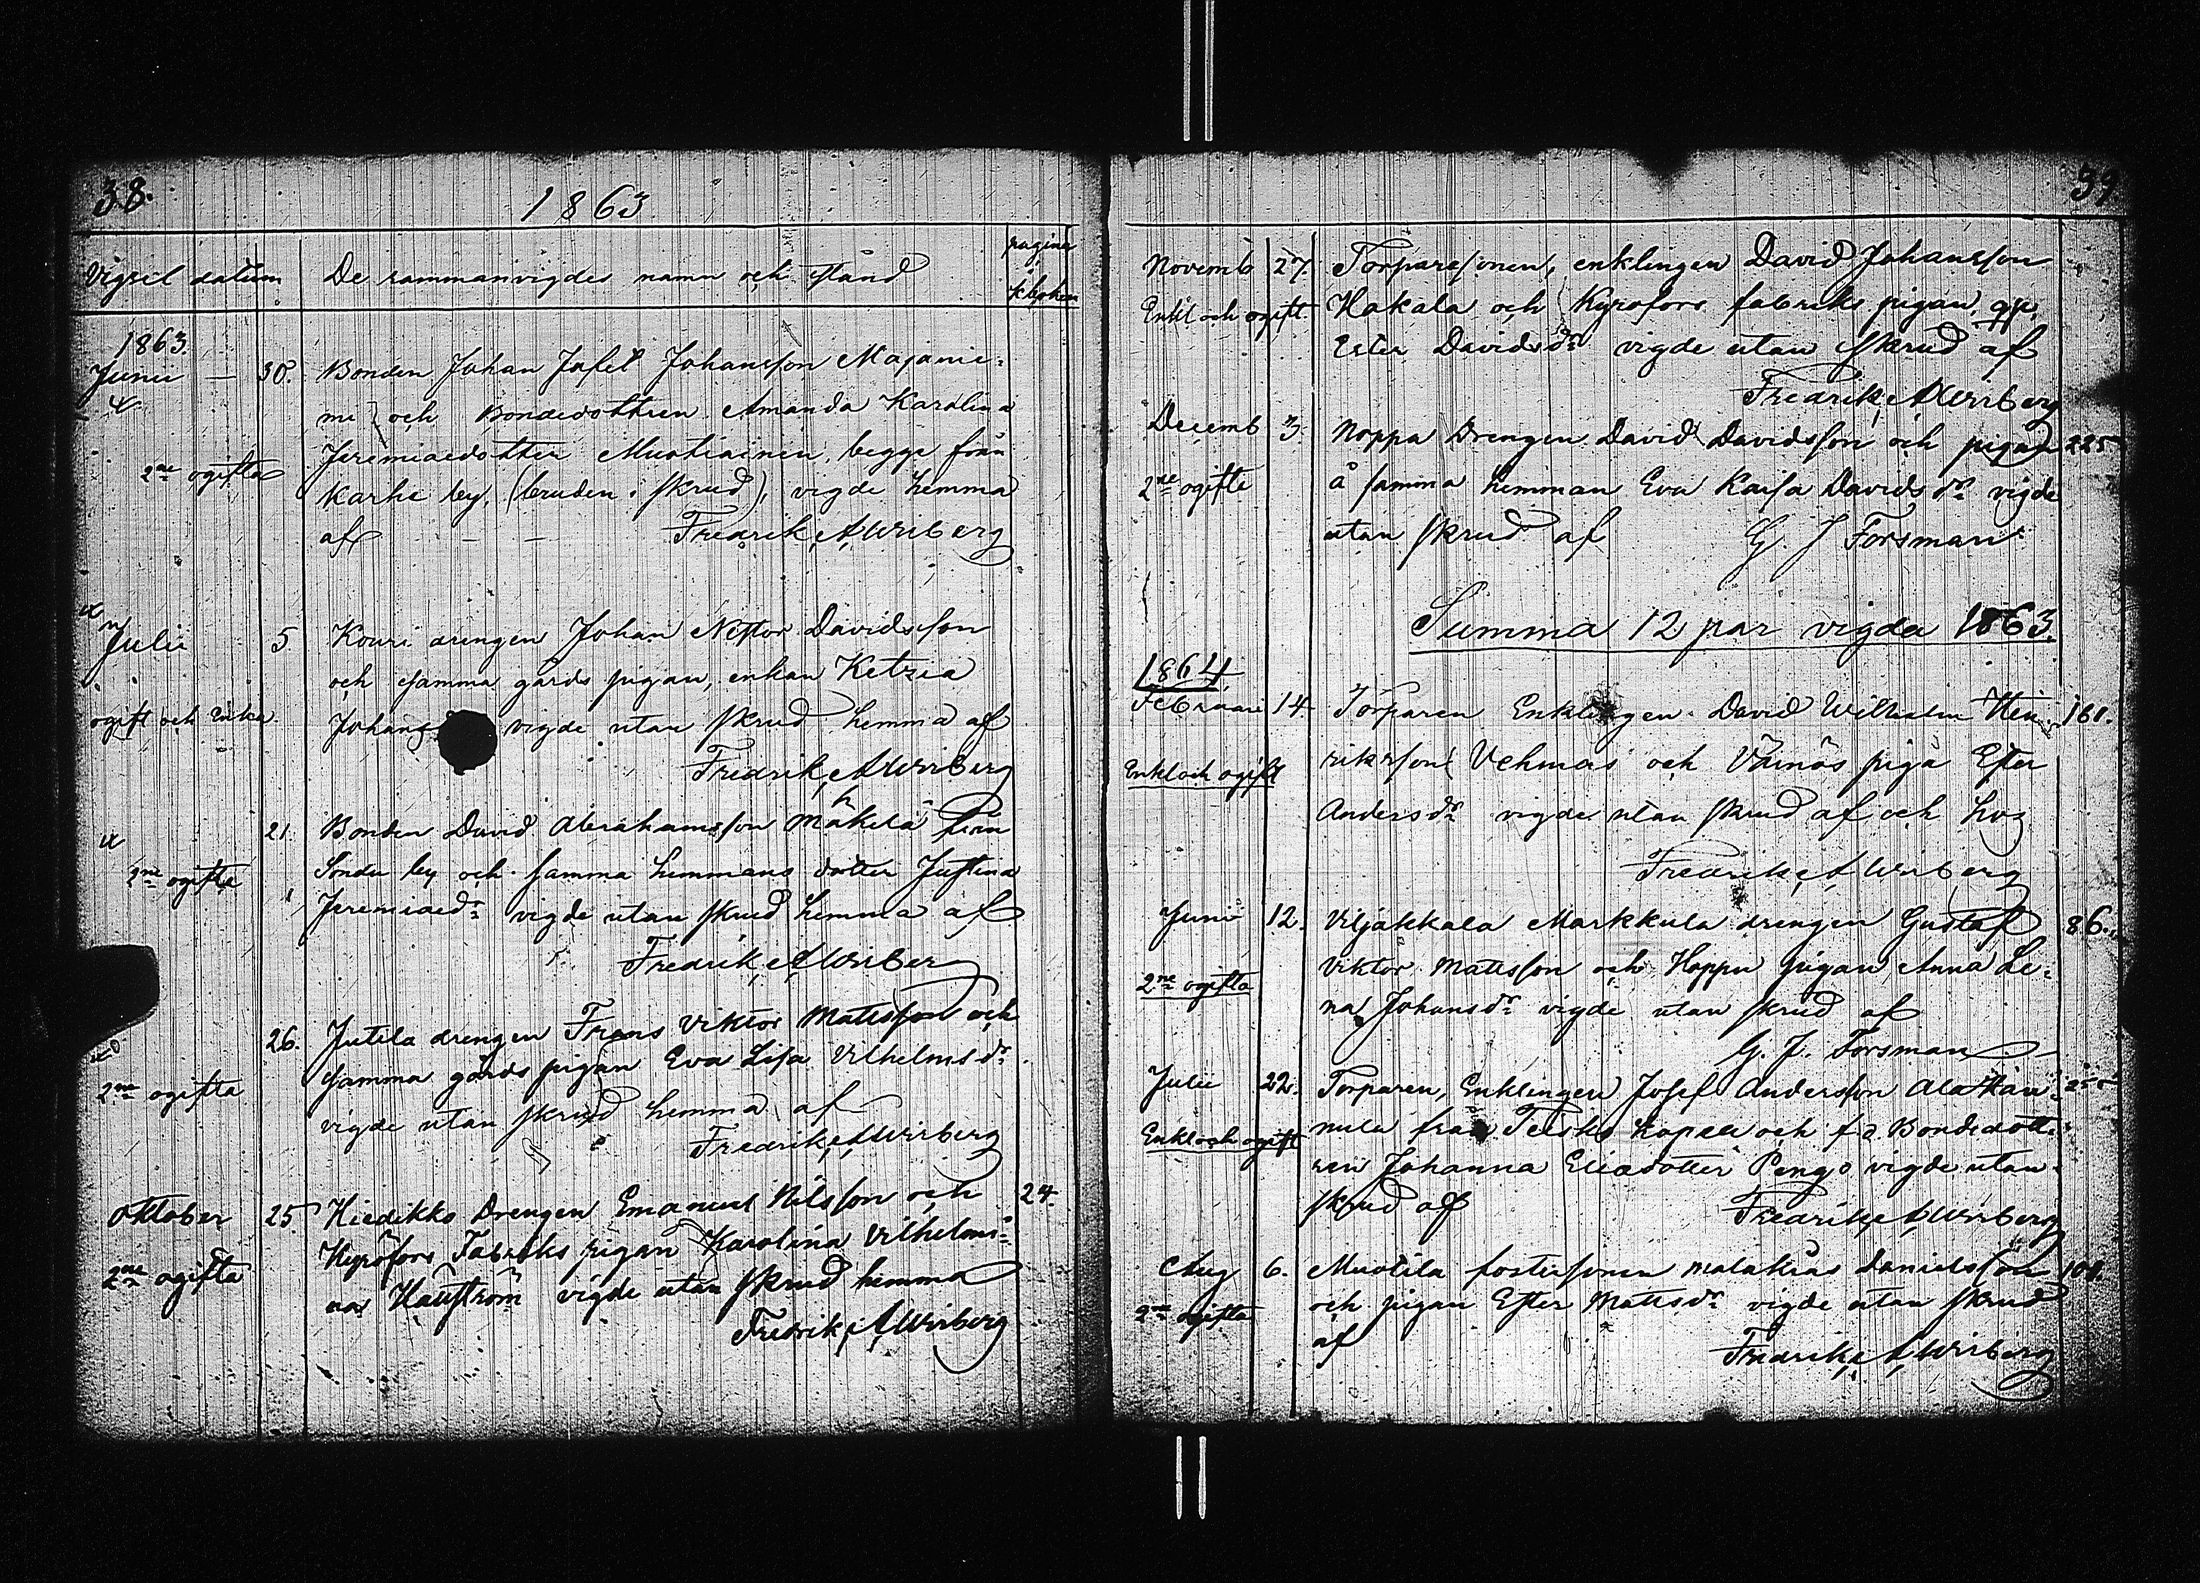 38.
1863
Vigsel datum De sammanvigdes namn och stånd pagina
1863.
Junii — 30. Bonden Johan Jafet Johansson Majanie-
mi och Bondedottren Amanda Karolina
2ne ogifta Jeremiaedotter Muotiainen, begge från
Karhe by, (bruden i skrud), vigde hemma
af Fredrik A Wriberg
Julii 5 Kouri drengen Johan Nestor Davidsson
och samma gårds pigan, enkan Ketzia
ogift och Enka Johans vigde utan skrud hemma af
Fredrik A Wriberg
21. Bonden David Abrahamsson Mäkelä från
2ne ogifta by och samma hemmans dotter Justina
Jeremiaedr vigde utan skrud hemma af
Fredrik A Wriberg
26. Jutila drengen Frans Viktor Mattsson och
samma gårds pigan Eva Lisa Vilhelmsdr
2ne ogifta vigde utan skrud hemma af
Fredrik A Wriberg
Oktober 25 Hiedikko Drengen Emanuel Nilsson och 24.
Kyröfors Fabriks pigan Karolina Vilhelmi-
2ne ogifta na vigde utan skrud hemma
Fredrik A Wriberg
39
Novemb 27. Torparesonen, enklingen David Johansson
Enkl och ogift Hakala och Kyrofors fabriks pigan,
Ester Davidsdr vigde utan skrud af
Fredrik A Wriberg
Decemb 3 Noppa Drengen David Davidsson och pigan 225
2ne ogifte å samma hemman Eva Kaisa Davidsdr vigde
utan skrud af G. J Forsman
Summa 12 par vigda 1863.
1864
Februari 14 Torparen Enklingen David Wilhelm Hen- 161.
Enkl och ogift riksson Vehmas och Väinös piga Ester
Andersdr vigde utan skrud af och hos
Fredrik A Wriberg
Junii 12. Viljakkala Markkula drengen Gustaf 86.
2ne ogifta Viktor Mattsson och Hoppu pigan Anna Le-
na Johansdr vigde utan skrud af
G. J. Forsman
Julii 22. Torparen, Enklingen Josef Andersson
Enkl och ogift från Teisko Kapell och f.d. Bondedott-
ren Johanna Eliaedotter Pengo vigde utan
skrud af Fredrik A Wriberg
Aug 6. Muotila fostersonen Malakias Danielsson 101.
2ne ogifta och pigan Ester Mattsdr vigde utan skrud
af Fredrik A Wriberg